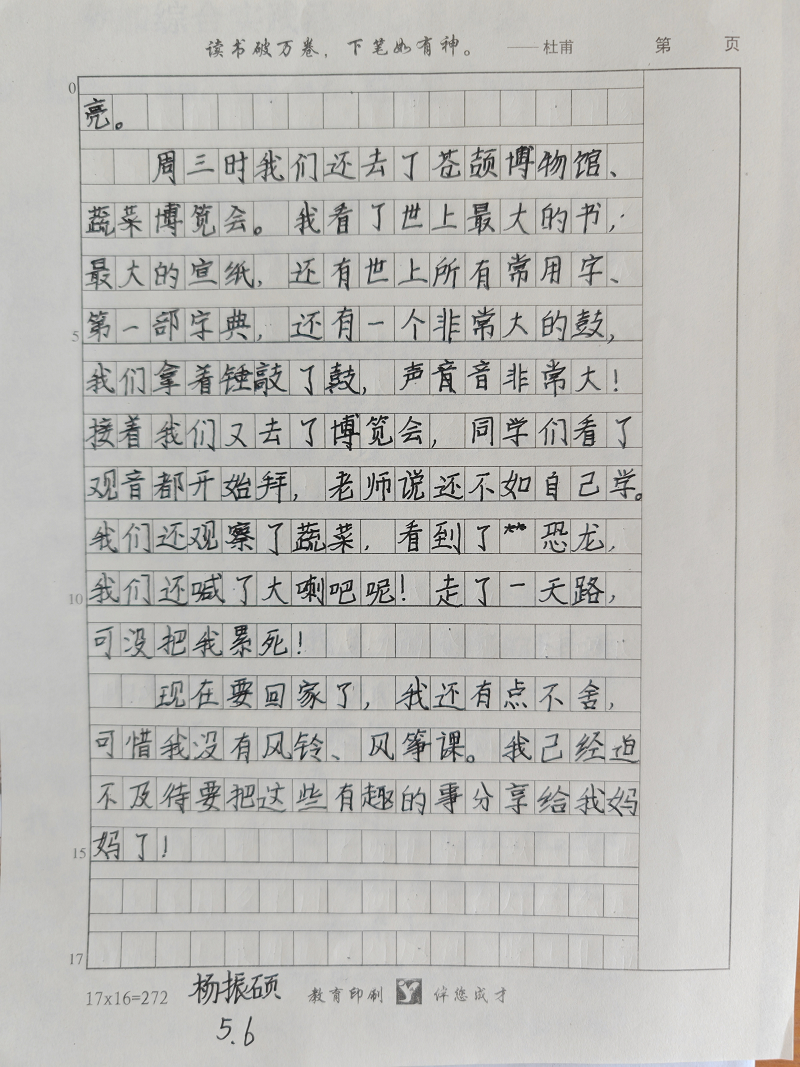 读书破万卷，下笔如有神。 ——杜甫 第 页
0
亮。
周三时我们还去了苍颉博物馆、
蔬菜博览会。我看了世上最大的书，
最大的宣纸，还有世上所有常用字、
第一部字典，还有一个非常大的鼓，
5
我们拿着锤敲了鼓，声音非常大！
接着我们又去了博览会，同学们看了
观音都开始拜，老师说还不如自己学。
我们还观察了蔬菜，看到了恐龙，
我们还喊了大喇吧呢！走了一天路，
10
可没把我累死！
现在要回家了，我还有点不舍，
可惜我没有风铃、风筝课。我己经迫
不及待要把这些有趣的事分享给我妈
妈了！
15
17
17x16=272 杨振硕 教育印刷 伴您成才
5.6